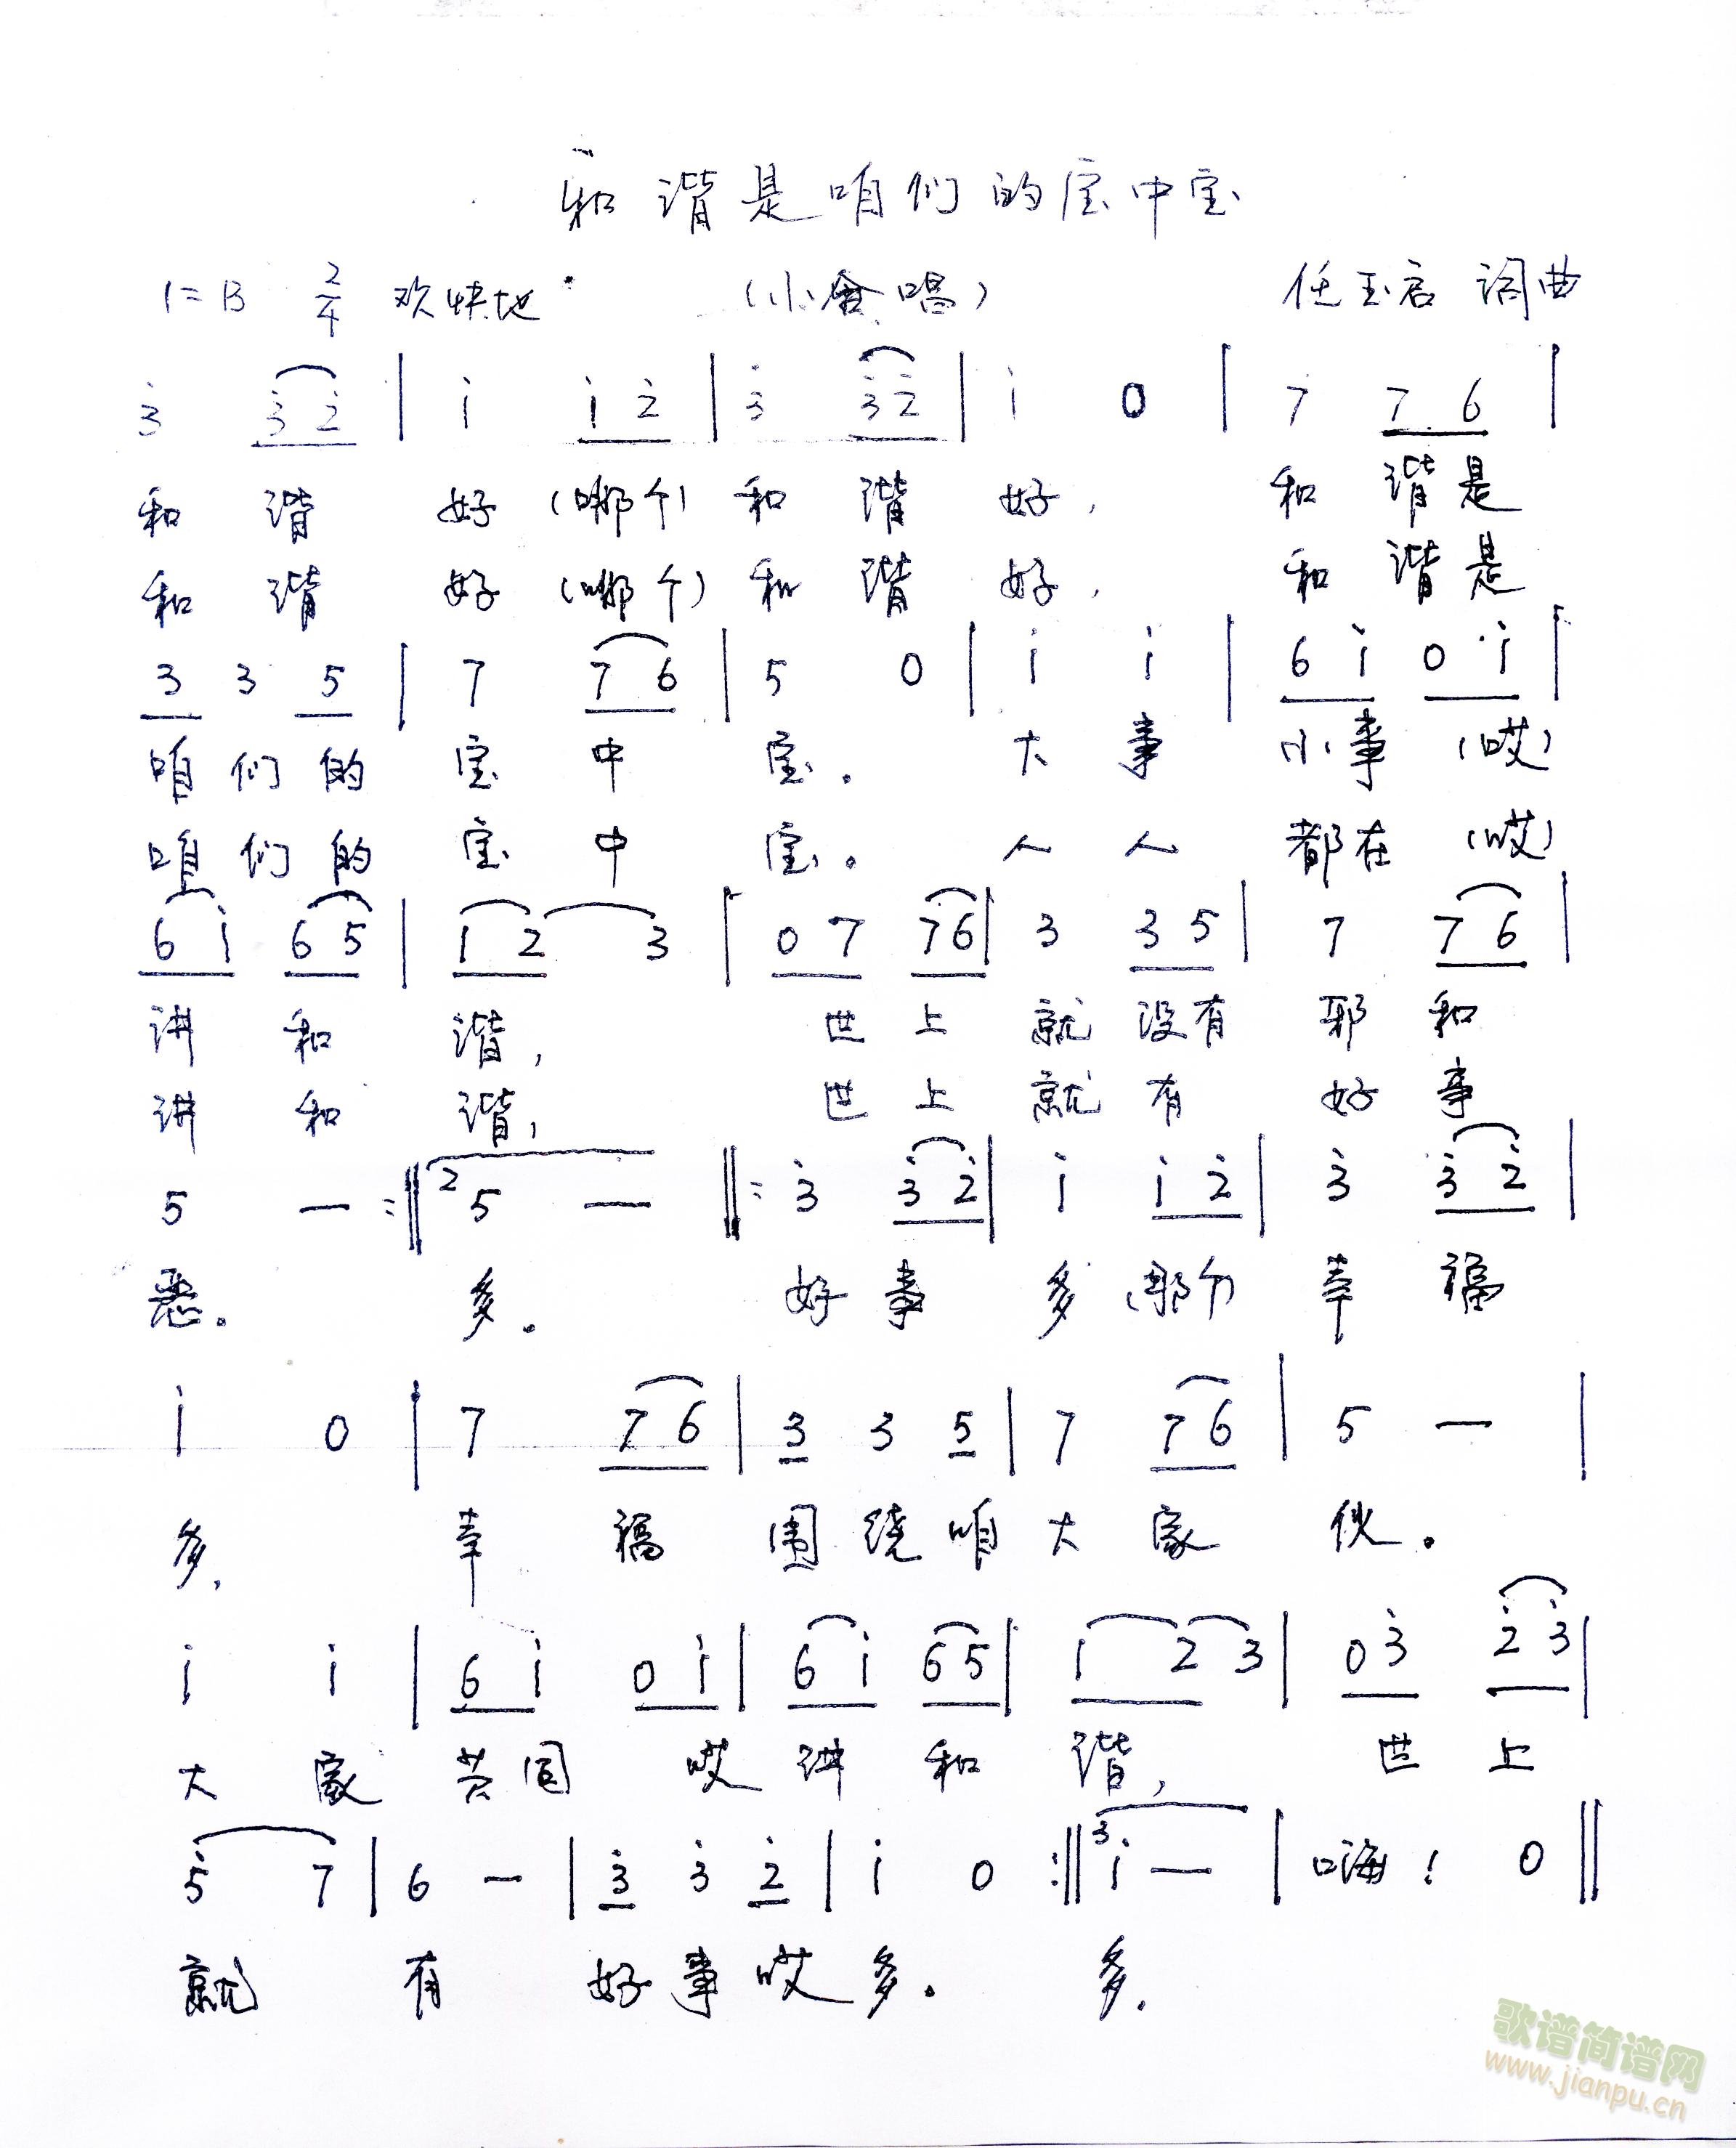 和谐是咱们的宝中宝
1=B 2/4 欢快地 (小合唱) 任玉启 词曲
3̇ 3̇ 2̇ | 1̇ 1̇ 2̇ | 3̇ 3̇ 2̇ | 1̇ 0 | 7 7 6 |
和 谐 好 (哪个) 和 谐 好, 和 谐 是
和 谐 好 (哪个) 和 谐 好, 和 谐 是
3 3 5 | 7 7 6 | 5 0 | 1̇ 1̇ | 6 1̇ 0 1̇ |
咱 们 的 宝 中 宝。 大 事 小 事 (哎)
咱 们 的 宝 中 宝。 人 人 都 在 (哎)
6 1̇ 6 5 | 1 2 3 | 0 7 7 6 | 3 3 5 | 7 7 6 |
讲 和 谐, 世 上 就 没 有 邪 和
讲 和 谐, 世 上 就 有 好 事
5 — :‖ 2 5 — ‖: 3̇ 3̇ 2̇ | 1̇ 1̇ 2̇ | 3̇ 3̇ 2̇ |
恶。 多。 好 事 多 (那个) 幸 福
1̇ 0 | 7 7 6 | 3 3 5 | 7 7 6 | 5 — |
多, 幸 福 围 绕 咱 大 家 伙。
1̇ 1̇ | 6 1̇ 0 1̇ | 6 1̇ 6 5 | 1 2 3 | 0 3̇ 2̇ 3̇ |
大 家 共 同 哎 讲 和 谐, 世 上
5̇ 7 | 6 — | 3̇ 3̇ 2̇ | 1̇ 0 :‖ 3 1̇ — | 嗨! 0 ‖
就 有 好 事 哎 多。 多。
歌谱简谱网
www.jianpu.cn